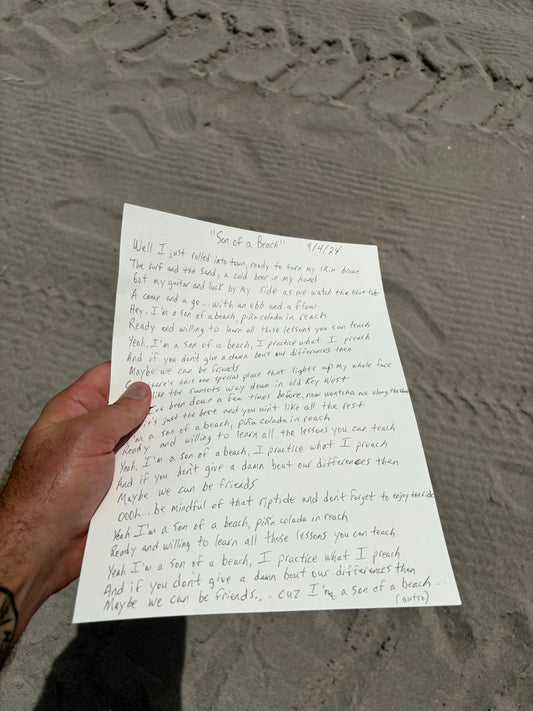 "Son of a Beach" 9/4/24
Well I just rolled into town, ready to turn my skin brown
The surf and the sand, a cold beer in my hand
Got my guitar and luck by my side as we watch the blue tide
A come and a go... with an ebb and a flow
Hey, I'm a son of a beach, piña colada in reach
Ready and willing to learn all those lessons you can teach
Yeah, I'm a son of a beach, I practice what I preach
And if you don't give a damn bout our differences then
Maybe we can be friends
here's this one special place that lights up my whole face
like the sunsets way down in old Key West
I've been down a few times before, now wontcha me along the
it's just the best and you ain't like all the rest
I'm a son of a beach, piña colada in reach
Ready and willing to learn all the lessons you can teach
Yeah, I'm a son of a beach, I practice what I preach
And if you don't give a damn bout our differences then
Maybe we can be friends
oooh... be mindful of that riptide and don't forget to enjoy the ride
Yeah I'm a son of a beach, piña colada in reach
Ready and willing to learn all those lessons you can teach
Yeah I'm a son of a beach, I practice what I preach
And if you don't give a damn bout our differences then
Maybe we can be friends... cuz I'm a son of a beach...
(outro)